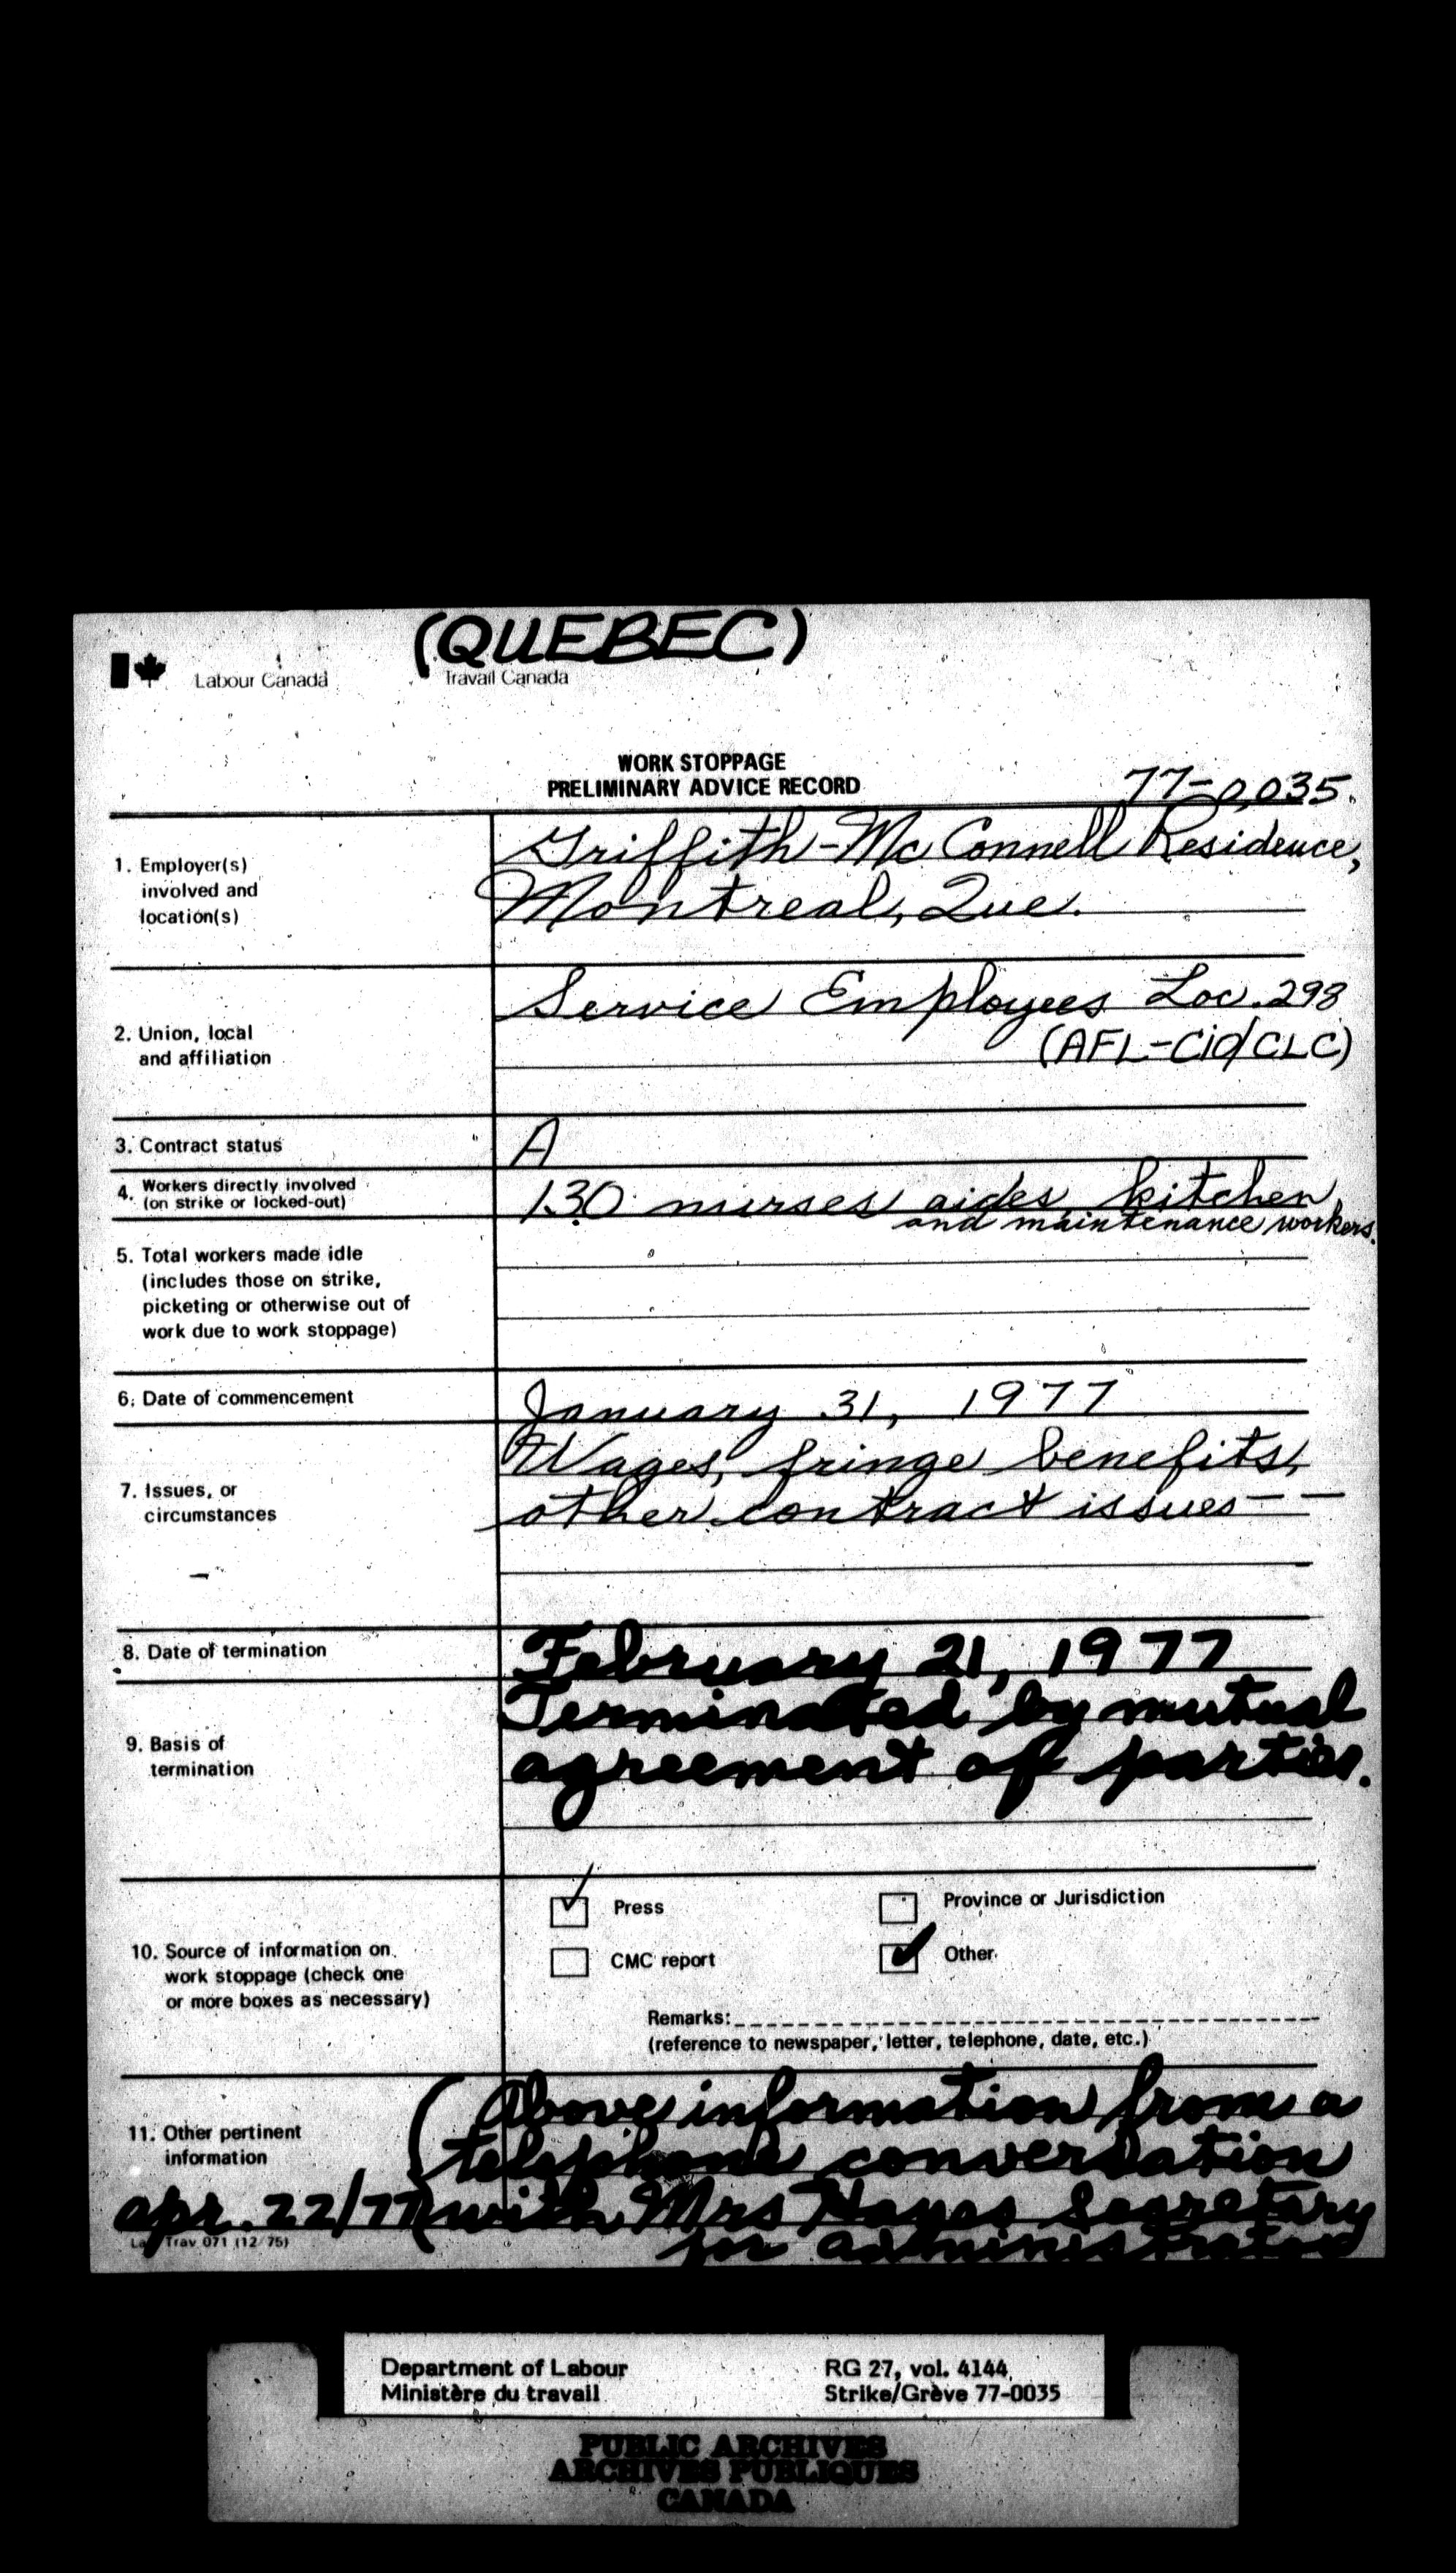 (QUEBEC)
Labour Canada Travail Canada
WORK STOPPAGE
PRELIMINARY ADVICE RECORD
77-0035.
1. Employer(s)
involved and
location(s)
Griffith-McConnell Residence,
Montreal, Que.
2. Union, local
and affiliation
Service Employees Loc. 298
(AFL-CiO/CLC)
3. Contract status
A
4. Workers directly involved
(on strike or locked-out)
130 nurses aides, kitchen
and maintenance workers.
5. Total workers made idle
(includes those on strike,
picketing or otherwise out of
work due to work stoppage)
6. Date of commencement
January 31, 1977
7. Issues, or
circumstances
Wages, fringe benefits,
other contract issues--
8. Date of termination
February 21, 1977
9. Basis of
termination
Terminated by mutual
agreement of parties.
10. Source of information on
work stoppage (check one
or more boxes as necessary)
Press
Province or Jurisdiction
CMC report
Other
Remarks:
(reference to newspaper, letter, telephone, date, etc.)
11. Other pertinent
information
(Above information from a
telephone conversation
apr. 22/77) with Mrs Hayes Secretary
for administrator
Trav 071 (12/75)
Department of Labour
Ministère du travail
RG 27, vol. 4144,
Strike/Grève 77-0035
PUBLIC ARCHIVES
ARCHIVES PUBLIQUES
CANADA